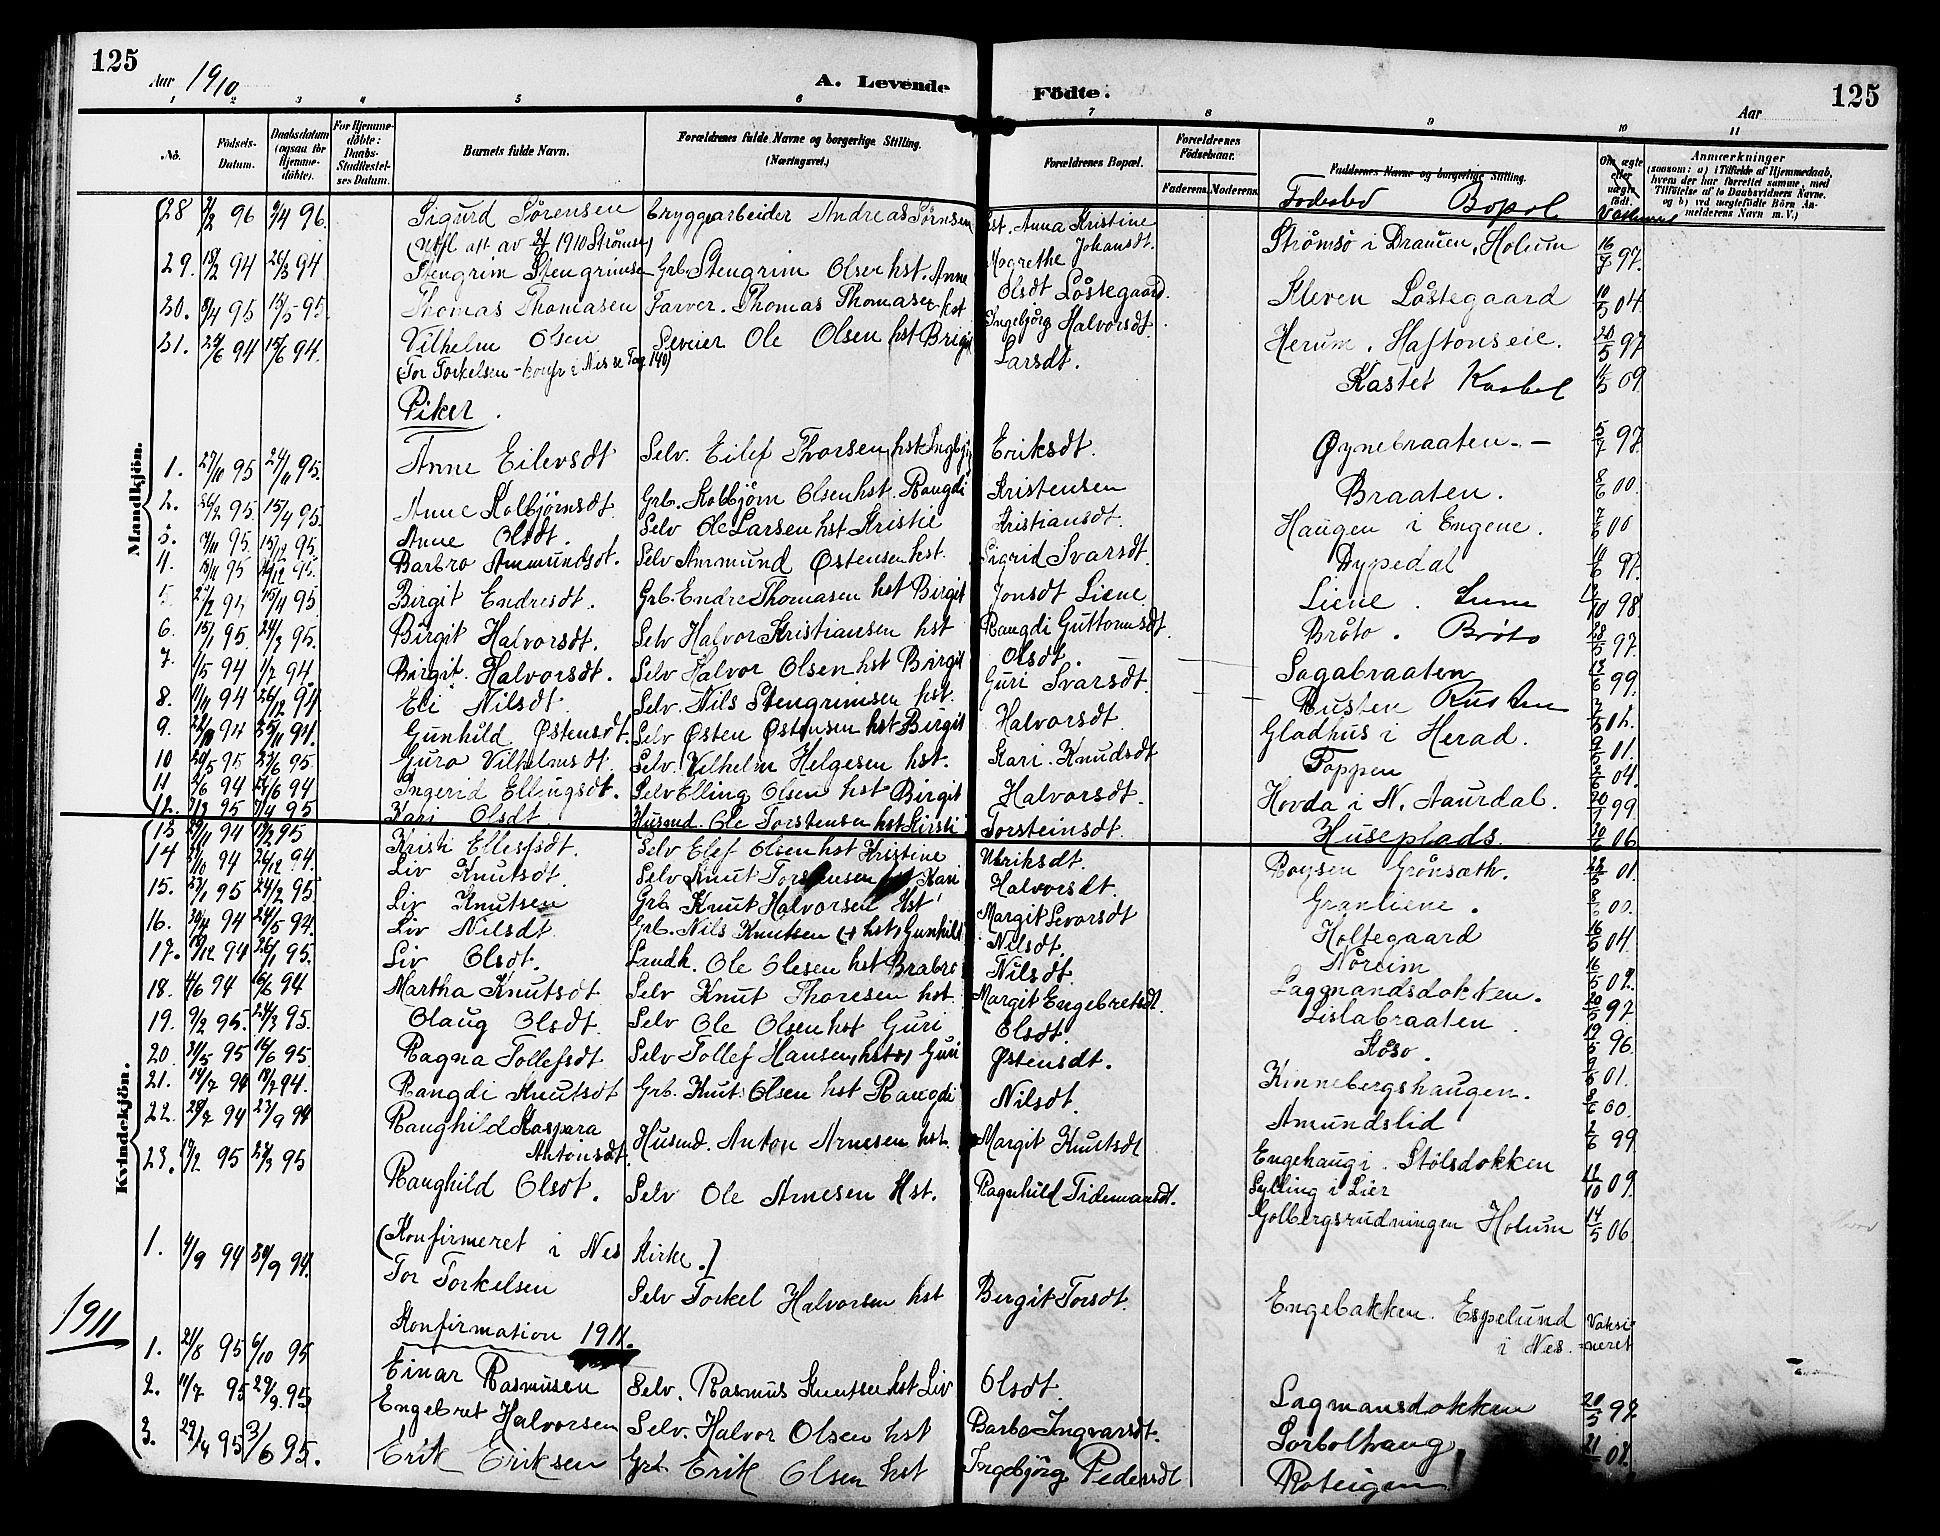 125
Aar 1910
A. Levende
Födte.
Aar
125
1 2 3 4 5 6 7 8 9 10 11
No.
Födsels-Datum.
Daabsdatum (ogsaa for Hjemme-döbte).
For Hjemme-döbte: Daabs-Stadfæstel-ses Datum.
Barnets fulde Navn.
Forældrenes fulde Navne og borgerlige Stilling. (Næringsvei.)
Forældrenes Bopæl.
Forældrenes Födselsaar.
Faderens. Moderens.
Faddernes Navne og borgerlige Stilling.
Fødested Bopæl
Om ægte eller uægte födt.
Anmærkninger
(saasom: a) i Tilfælde af Hjemmedaab, hvem der har forrettet samme, med Tilföielse af to Daabsvidners Navne, og b) ved uægtefödte Börn An-melderens Navn m. V.)
Mandkjön.
Kvindekjön.
28 2/2 96 9/4 96. Sigurd Sørensen bryggearbeider Andreas Sørnsen hst. Anna Kristine Strømsø i Dramen, Holum 16/7 97.
(Utfl. att av 2/4 1910 Strømsø) Johansdt.
29. 18/2 94 26/3 94 Stengrim Stengrimsen Grb. Stengrim Olsen hst. Anne Margrethe Olsdt Løstegaard. Kleven Løstegaard 10/5 04.
30. 8/4 95 15/5 95 Thomas Thomasen Farver. Thomas Thomasen hst Ingebjørg Halvorsdt. Herum. Haftonseie. 20/5 97
31. 24/6 94 15/6 94. Vilhelm Olsen Ole Olsen hst Birgit Larsdt. Kastet Kastet 11/5 09
(Tor Torkelsen - konfr i Nes se Pag 140)
Piker.
1. 27/10 95 24/11 95. Anne Eilevsdt Selv. Eilef Thorsen hst Ingbjør Eriksdt. Øynebraaten - 5/7 97.
2. 26/2 95. 15/4 95. Anne Kolbjørnsdt. Grb. Kolbjørn Olsen hst. Rangdi Kristensen Braaten. 8/6 00.
3. 7/11 95. 15/12 95. Anne Olsdt. Selv Ole Larsen hst Kristie Kristiansdt. Haugen i Engene. 7/6 00
4. 15/11 95 26/12 95. Barbro Ammundsdt. Selv Ammund Østensen hst. Sigrid Svarsdt. Dypedal 11/6 97.
5. 15/4 95 Birgit Endresdt. Grb. Endre Thomasen hst Birgit Jonsdt Liene. Liene. 12/10 98.
6. 15/1 95. 24/3 95. Birgit Halvorsdt. Selv Halvor Kristiansen hst Rangdi Guttormsdt. Bråto. Bråto 23/5 97.
7. 1/5 94 1/7 94. Birgit Halvorsdt. Selv Halvor Olsen hst Birgit Olsdt. Sagabraaten 13/6 99.
8. 11/11 94 26/12 94. Eli Nilsdt Selv. Nils Stengrimsen hst. Guri Svarsdt. Rusten Rusten
9. 22/10 94 25/11 94. Gunhild Østensdt. Selv Østen Østensen hst Birgit Halvorsdt. Gladhus i Herad. 01.
10 20/5 95 23/6 95. Guro Vilhelmsdt. Selv. Vilhelm Helgesen hst. Kari. Knudsdt Toppen 04.
11 2/6 94 24/6 94 Ingerid Ellingsdt. Selv Elling Olsen hst Birgit Halvorsdt. Hovda i N. Aaurdal. 99
12. 95 7/4 95 Kari Olsdt Husmd. Ole Torstensen hst Kirsti Torsteinsdt. Huseplads 06
13 94 95 Kristi Ellefsdt. Selv Elef Olsen hst Kristine Ulriksdt. Roysen Grønsæth. 01.
14 94 26/12 94. Liv Knutsdt. Selv Knut Torstensen hst Kari Halvorsdt. Granliene. 00.
15. 23/1 95 24/2 95. Liv Knutsen Grb Knut Halvorsen hst Margit Levorsdt Holtegaard 04.
16. 30/4 94 24/5 94. Liv Nilsdt. Grb. Nils Knutsen (+ hst) Gunhild Nilsdt. Noreim
17. 19/12 94 26/1 95. Liv Olsdt. Landh. Ole Olesen hst Brabro Nilsdt. Laggmandsdokken.
18. 4/6 94 16/6 94 Martha Knutsdt Selv Knut Thoresen hst. Margit Engebretsdt. Lislabraaten. 97
19. 9/2 95. 24/3 95. Olaug Olsdt. Selv Ole Olsen hst Guri Olsdt. Køso. 96.
20. 31/5 95 16/6 95 Ragna Tollefsdt Selv Tollef Hansen, hst Guri Østensdt. Kinnebergshaugen. 01.
21. 14/7 94 18/7 94. Rangdi Knutsdt Grb. Knut Olsen hst Rangdi Nilsdt. Amundslid 00.
22. 28/7 94 23/9 94 Ranghild Kaspara Antonsdt. Husmd. Anton Arnesen hst. Margit Knutsdt Engehaug i. Stølsdokken 2/6 99
23. 19/2 95 24/3 95 Ranghild Olsdt. Selv Ole Arnesen Hst. Ragnhild Tidemansdt. Sylling i Lier 11/10 09.
Golbergsrudningen Holum 14/5 06.
(Konfirmeret i Nes Kirke.)
1. 4/9 94 30/9 94. Tor Torkelsen Selv Torkel Halvorsen hst Bergit Torsdt. Engebakken. Espelund i Nes. Vaksi=neret
1911
Konfirmation 1911.
1. 21/8 95 6/10 95 Einar Rasmusen Selv. Rasmus Knutsen hst Liv Olsdt. Lagmansdokken 20/5 97.
2. 11/7 95 29/9. 95 Engebret Halvorsen Selv. Halvor Olsen hst Barbo Ingvarsdt. Sorbolhaug 21 02.
3. 29/4 95 3/6 95. Erik Eriksen Grb Erik Olsen hst Ingebjörg Pedersdt Roteigen